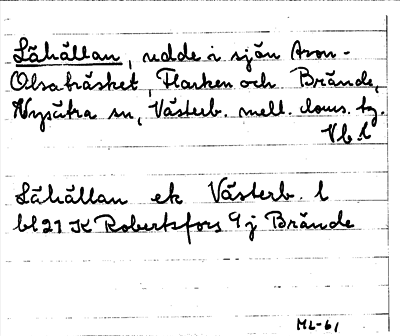 Sähällan, udde i sjön Avon-
Olsabräsket, Flarken och Brände,
Nysätra sn, Västerb. mell. doms. tg.
Vb. l
Sähällan ek Västerb. l
bl 21 K Robertsfors 9 j Brände
ML-61